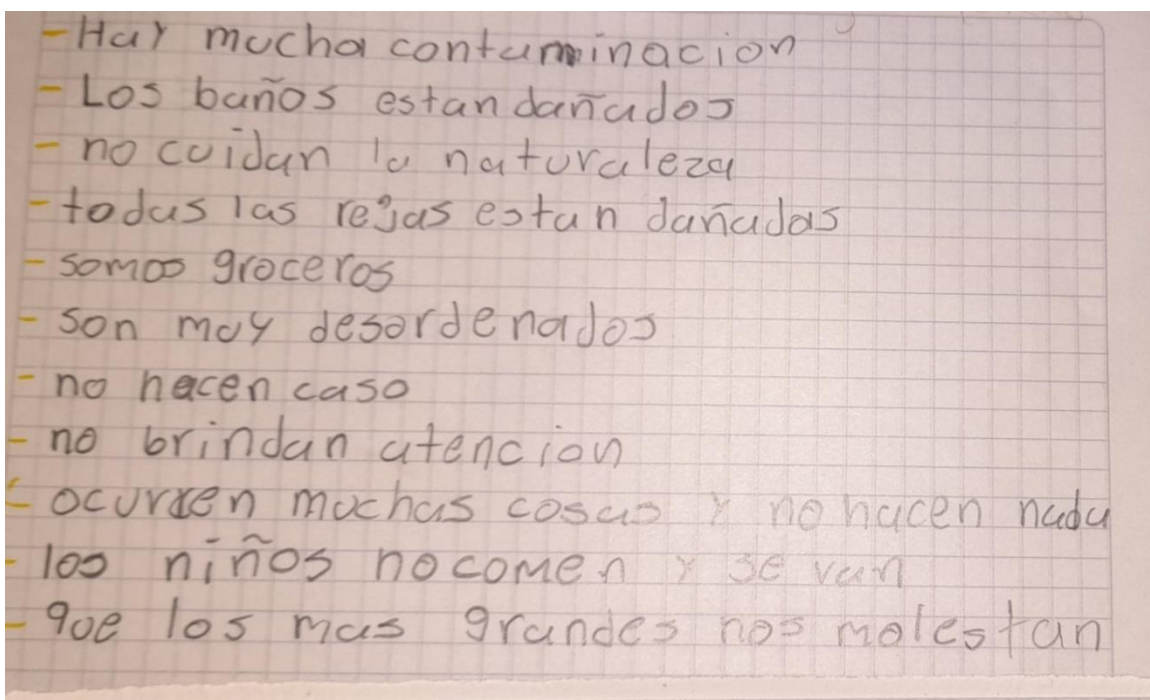 - Hay mucha contaminacion
- Los baños estan dañados
- no cuidan la naturaleza
- todas las rejas estan dañadas
- somos groceros
- son muy desordenados
- no hacen caso
- no brindan atencion
- ocurren muchas cosas y no hacen nada
- los niños no comen y se van
- que los mas grandes nos molestan